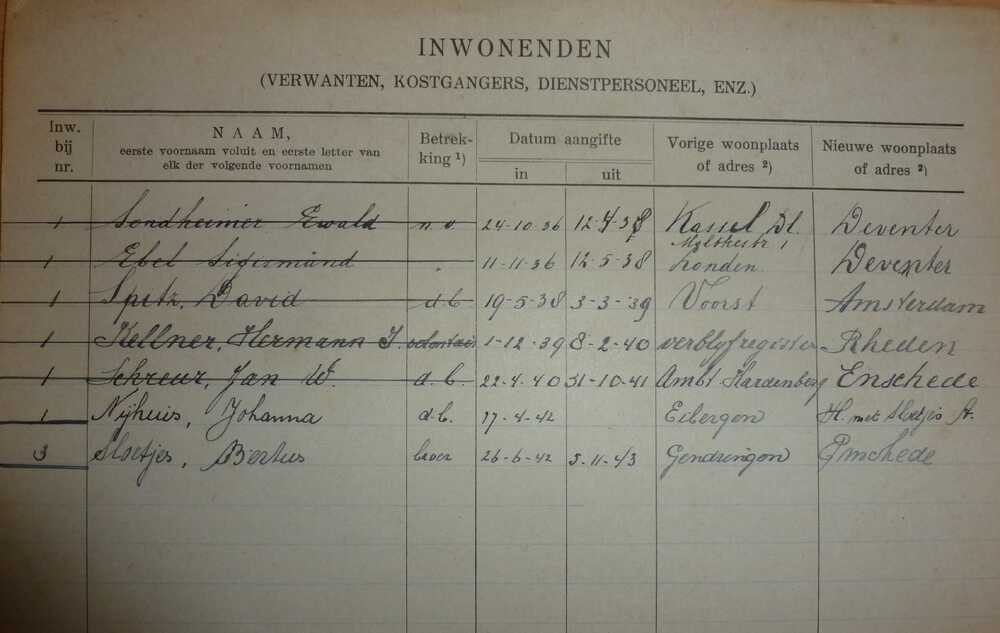 INWONENDEN
(VERWANTEN, KOSTGANGERS, DIENSTPERSONEEL, ENZ.)
Inw. bij nr. NAAM, eerste voornaam voluit en eerste letter van elk der volgende voornamen Betrek-king 1) Datum aangifte in uit Vorige woonplaats of adres 2) Nieuwe woonplaats of adres 2)
1 Sondheimer Ewald n.v. 24-10-36 12-4-38 Kassel Dl. Deventer
Moltkestr 1
1 Ebel Sigismund " 11-11-36 12-5-38 Londen Deventer
1 Spitz, David d.b. 19-5-38 3-3-'39 Voorst Amsterdam
1 Kellner, Hermann J. 1-12-39 8-2-40 verblyfregister Rheden
1 Schreur, Jan W. d.b. 22-4-40 31-10-41 Ambt Hardenberg Enschede
1 Nijhuis, Johanna d.b. 17-4-42 Eibergen H. met Slotjis A.
3 Sloetjes, Bertus broer 26-6-42 5-11-43 Gendringen Enschede